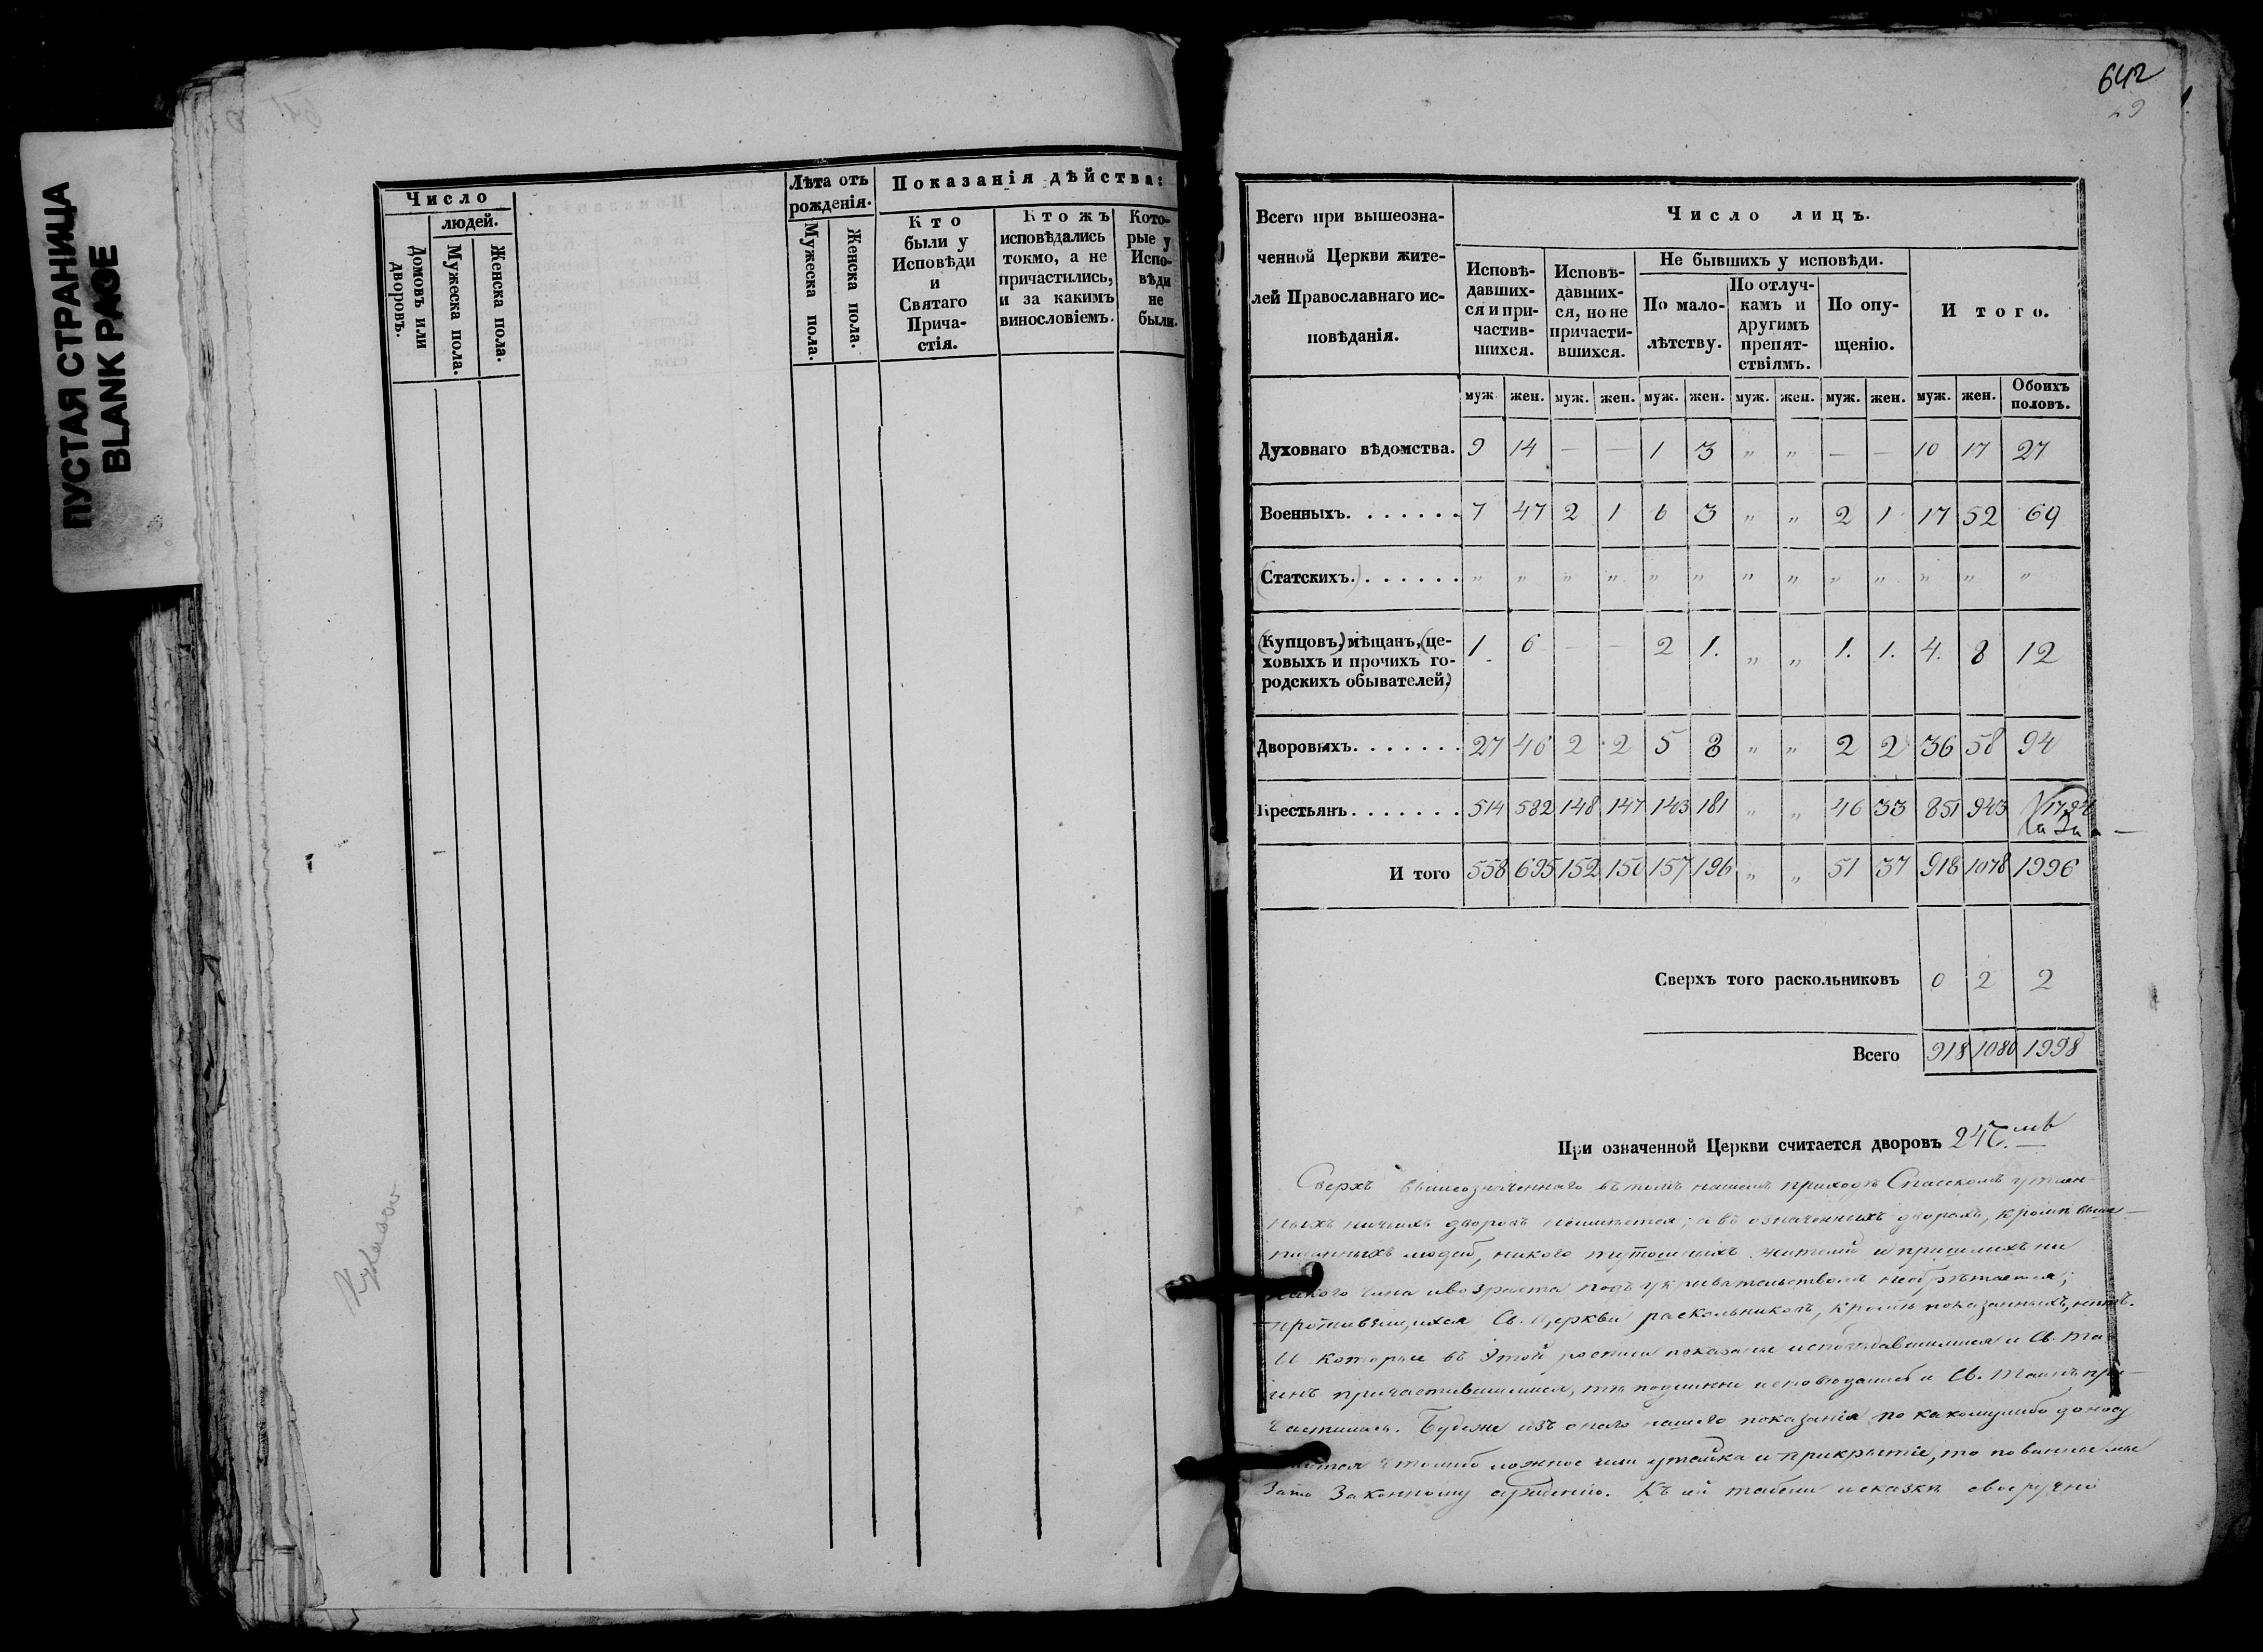 ПУСТАЯ СТРАНИЦА
BLANK PAGE
Число
людей.
Домовъ или дворовъ.
Мужеска пола.
Женска пола.
Лѣта отъ рожденія.
Мужеска пола.
Женска пола.
Показанія дѣйства:
Кто были у Исповѣди и Святаго Прича-стія.
Ктожъ исповѣдались токмо, а не причастились, и за какимъ винословіемъ.
Кото-рые у Испо-вѣди не были.
642
29
Всего при вышеозна-
ченной Церкви жите-
лей Православнаго ис-
повѣданія.
Число лицъ.
Исповѣ-давших-ся и при-частив-шихся.
Исповѣ-давших-ся, но не причасти-вшихся.
Не бывшихъ у исповѣди.
По мало-лѣтству.
По отлуч-камъ и другимъ препят-ствіямъ.
По опу-щенію.
Итого.
муж. жен. муж. жен. муж. жен. муж. жен. муж. жен. муж. жен. Обоихъ половъ.
Духовнаго вѣдомства. 9 14 — — 1 3 „ „ — — 10 17 27
Военныхъ. . . . . . . 7 47 2 1 6 3 „ „ 2 1 17 52 69
(Статскихъ.) . . . . . . „ „ „ „ „ „ „ „ „ „ „ „ „
(Купцовъ,) мѣщанъ, (це-
ховыхъ и прочихъ го-
родскихъ обывателей.) 1 6 — — 2 1. „ „ 1. 1. 4. 8 12
Дворовыхъ. . . . . . . 27 46 2 2 5 8 „ „ 2 2 36 58 94
Крестьянъ. . . . . . . 514 582 148 147 143 181 „ „ 46 33 851 943 1794
И того 558 695 152 150 157 196 „ „ 51 37 918 1078 1996
Сверхъ того раскольниковъ 0 2 2
Всего 918 1080 1998
При означенной Церкви считается дворовъ
Сверхъ вышеозначеннаго въ томъ нашемъ приходѣ Спасскомъ утаен-
ныхъ ничьихъ дворовъ неимѣется; а въ означенныхъ дворахъ, кромѣ выше-
писанныхъ людей, никого тутошнихъ жителей и пришлыхъ ни
какого чина и возраста подъ укривательствомъ необрѣтается;
противящихся Св. Церкви раскольниковъ, кромѣ показанныхъ, нѣтъ.
И которые въ этой росписи показаны исповѣдавшимися и Св. Та-
инъ причастившимися, тѣ подлинно исповѣданы и Св. Таинъ при-
частились. Будеже изъ онаго нашего показанія по какомулибо доносу
чтолибо ложное или утайка и прикрытіе, то повинны мы
зато Законному сужденію. Къ сей табели и сказкѣ своеручно